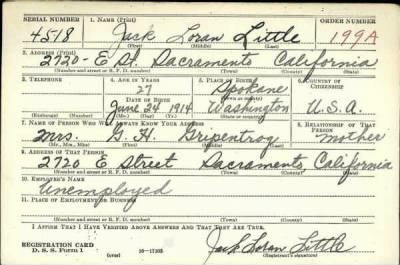 SERIAL NUMBER 1. NAME (Print)
4518 Jack Loran Little 199A
(First) (Middle) (Last)
2. ADDRESS (Print)
2720-E St. Sacramento California
(Number and street or R. F. D. number) (Town) (County) (State)
3. TELEPHONE 4. AGE IN YEARS 5. PLACE OF BIRTH 6. COUNTRY OF CITIZENSHIP
27 Spokane
DATE OF BIRTH (Town or county)
June 24 1914 Washington U.S.A.
(Exchange) (Number) (Mo.) (Day) (Yr.) (State or country)
7. NAME OF PERSON WHO WILL ALWAYS KNOW YOUR ADDRESS 8. RELATIONSHIP OF THAT PERSON
Mrs. G. H. Gripentrog Mother
(Mr., Mrs., Miss) (First) (Middle) (Last)
9. ADDRESS OF THAT PERSON
2720 E Street Sacramento California
(Number and street or R. F. D. number) (Town) (County) (State)
10. EMPLOYER'S NAME
Unemployed
11. PLACE OF EMPLOYMENT OR BUSINESS
(Number and street or R. F. D. number) (Town) (County) (State)
I AFFIRM THAT I HAVE VERIFIED ABOVE ANSWERS AND THAT THEY ARE TRUE.
REGISTRATION CARD
D. S. S. Form 1 (over) Jack Loran Little
(Registrant's signature)